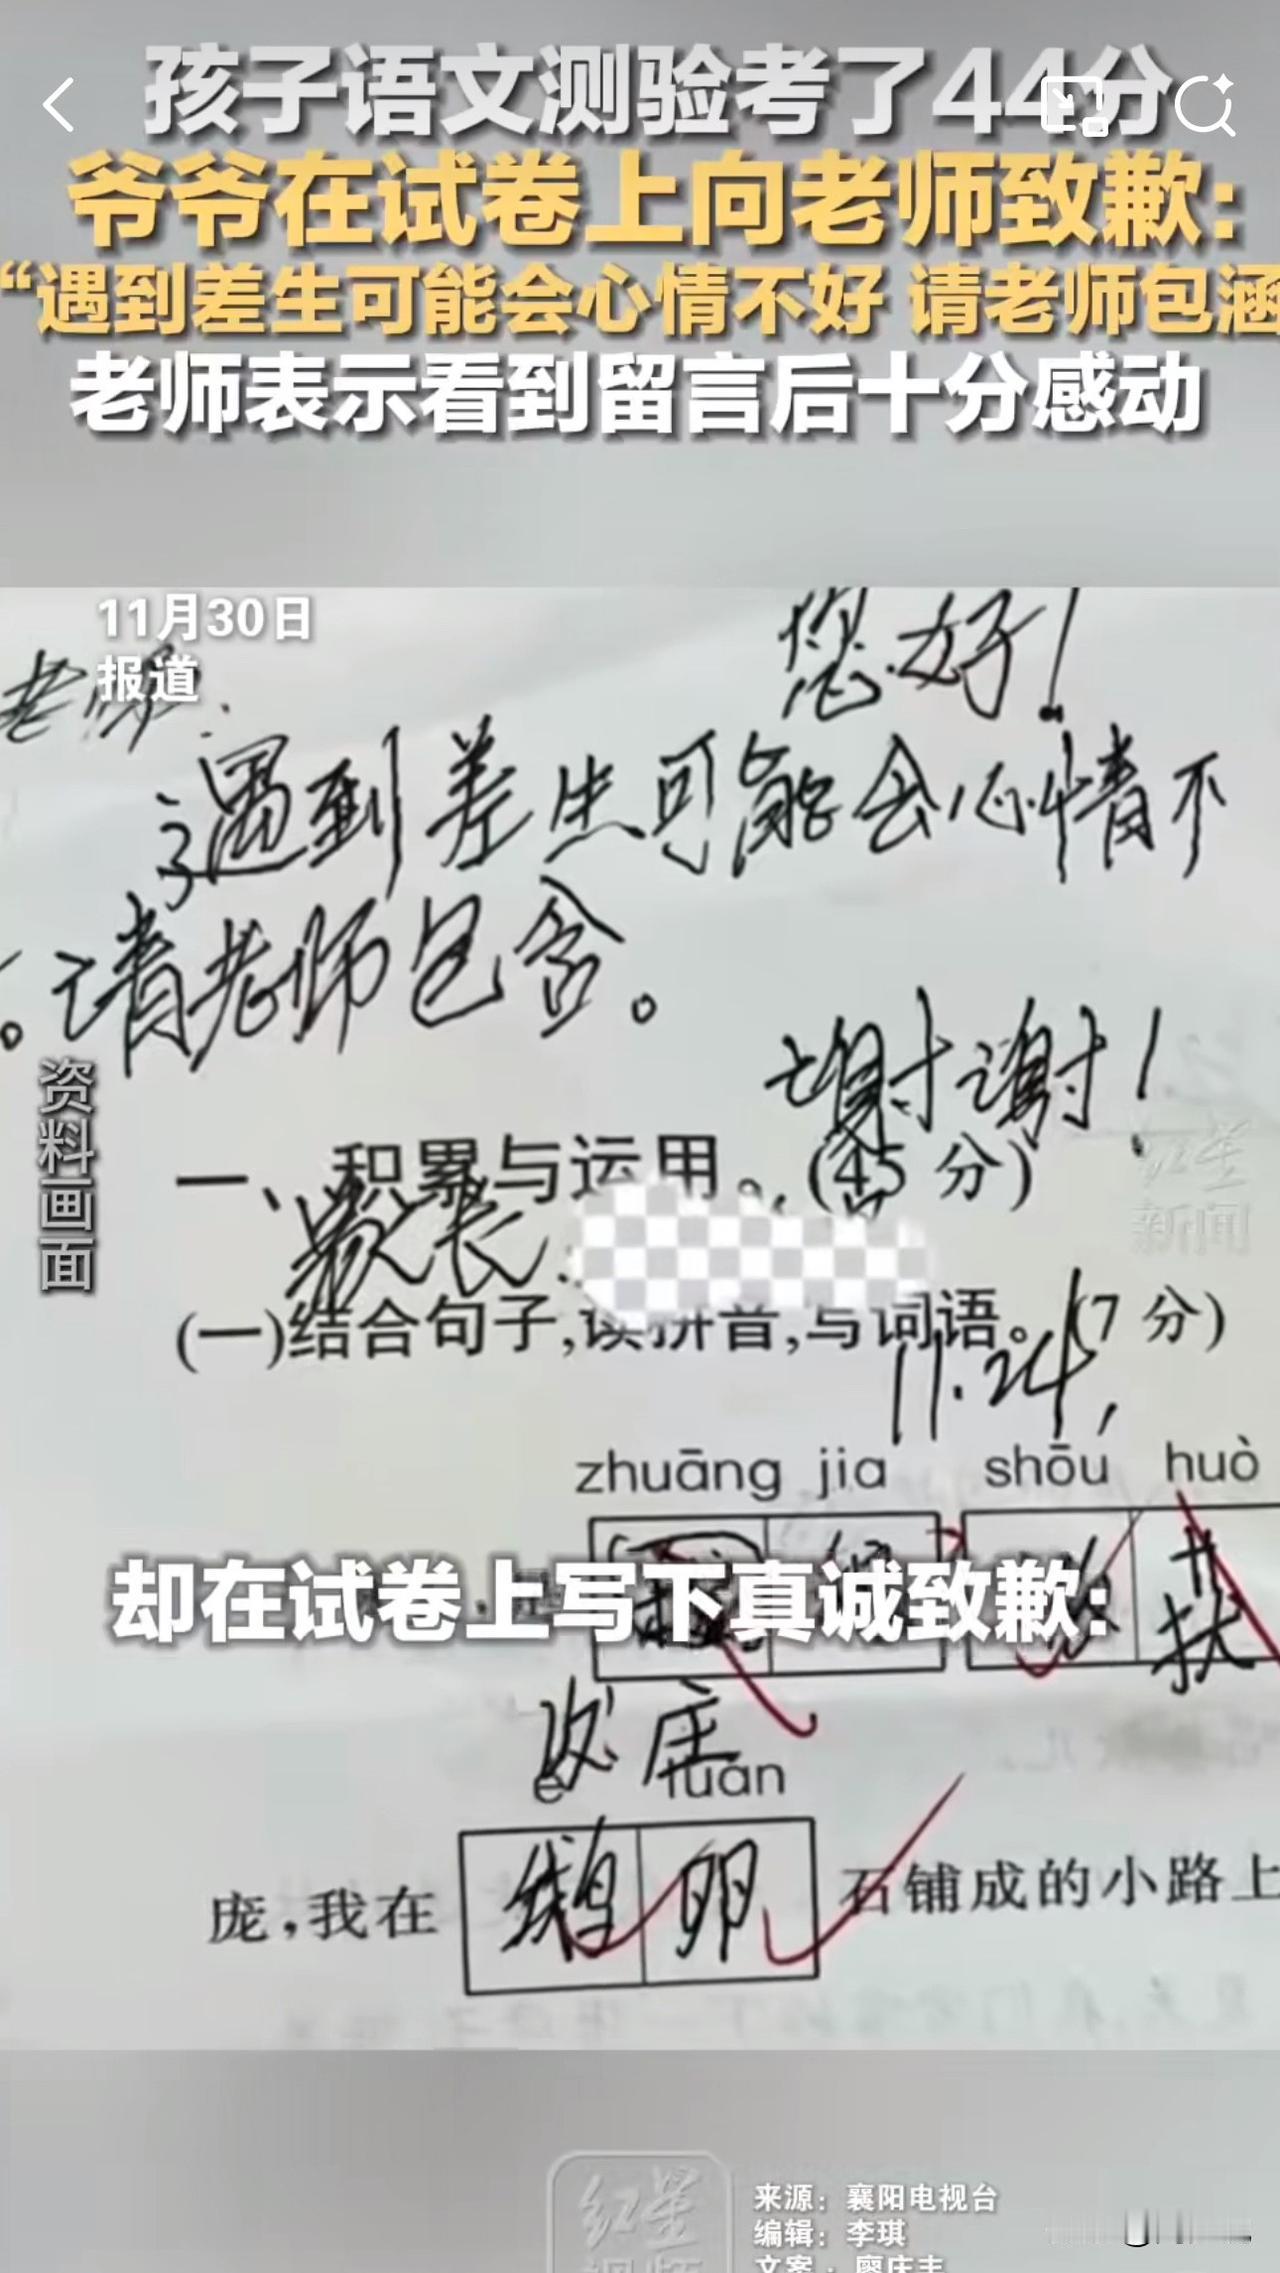 孩子语文测验考了44分
爷爷在试卷上向老师致歉:
“遇到差生可能会心情不好 请老师包涵
老师表示看到留言后十分感动
11月30日
报道
老师:
您好!
遇到差生可能会心情不
。请老师包含。
谢谢!
资料画面
红星
新闻
一、积累与运用。(45分)
家长:
(一)结合句子,读拼音,写词语。(7分)
11.24,
zhuāng jia shōu huò
却在试卷上写下真诚致歉:
é luǎn
庞,我在 鹅卵 石铺成的小路上
红星
来源:襄阳电视台
编辑:李琪
文案:廖庆丰